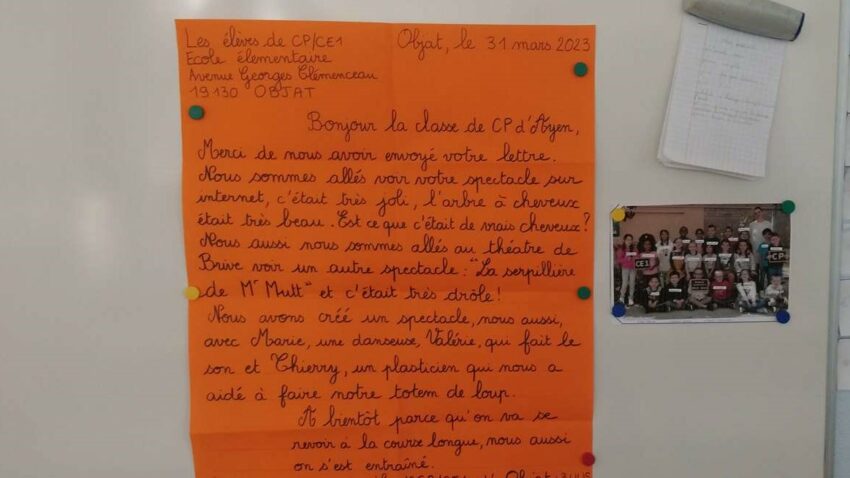 Les élèves de CP/CE1
Objat, le 31 mars 2023
Ecole élementaire
Avenue Georges Clémenceau
19130 OBJAT
Bonjour la classe de CP d'Ayen,
Merci de nous avoir envoyé votre lettre.
Nous sommes allés voir votre spectacle sur
internet, c'était très joli, l'arbre à cheveux
était très beau. Est ce que c'était de vrais cheveux?
Nous aussi nous sommes allés au théatre de
Brive voir un autre spectacle: "La serpillière
de Mr Mutt" et c'était très drôle!
Nous avons créé un spectacle, nous aussi,
avec Marie, une danseuse, Valérie, qui fait le
son et Thierry, un plasticien qui nous a
aidé à faire notre totem de loup.
A bientôt parce qu'on va se
revoir à la course longue, nous aussi
on s'est entraîné.
CE1
CP